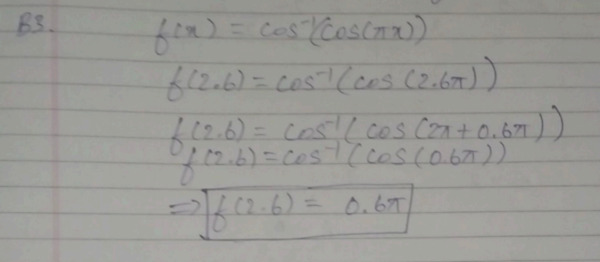 B3.
f(x) = cos⁻¹(cos(πx))
f(2.6) = cos⁻¹(cos(2.6π))
f(2.6) = cos⁻¹(cos(2π+0.6π))
f(2.6) = cos⁻¹(cos(0.6π))
⇒ f(2.6) = 0.6π